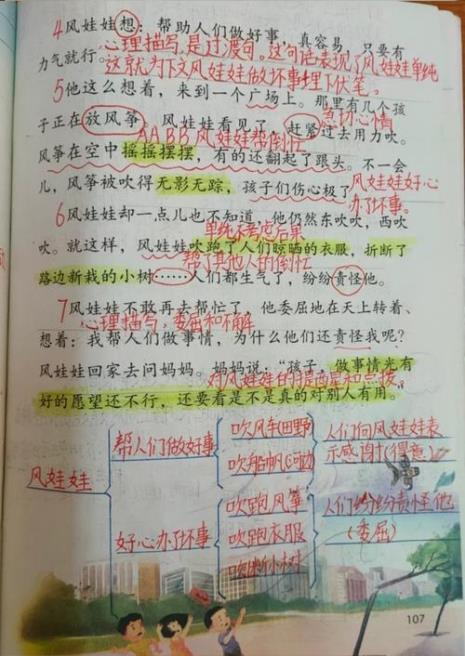 4 风娃娃想：帮助人们做好事，真容易，只要有
心理描写，是过渡句。这句话表现了风娃娃单纯
力气就行。
这就为下文风娃娃做坏事埋下伏笔。
5 他这么想着，来到一个广场上。那里有几个孩
急切心情
子正在放风筝，风娃娃看见了，赶紧过去用力吹。
AABB 风娃娃帮倒忙
风筝在空中摇摇摆摆，有的还翻起了跟头。不一会
儿，风筝被吹得无影无踪，孩子们伤心极了
风娃娃好心
办了坏事。
6 风娃娃却一点儿也不知道，他仍然东吹吹，西吹
单纯不考虑后果
吹。就这样，风娃娃吹跑了人们晾晒的衣服，折断了
帮了其他人的倒忙
路边新栽的小树……人们都生气了，纷纷责怪他。
7 风娃娃不敢再去帮忙了，他委屈地在天上转着、
心理描写，委屈和不解
想着：我帮人们做事情，为什么他们还责怪我呢？
风娃娃回家去问妈妈。妈妈说：“孩子，做事情光有
对风娃娃的提醒和点拨。
好的愿望还不行，还要看是不是真的对别人有用。”
风娃娃
帮人们做好事
吹风车(田野)
吹船帆(河边)
人们向风娃娃表
示感谢(得意)
好心办了坏事
吹跑风筝
吹跑衣服
吹断小树
人们纷纷责怪他
(委屈)
107